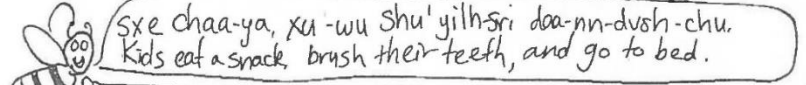 Sxe chaa-ya, xu-wu shu'yilh-sri daa-nn-dvsh-chu.
Kids eat a snack, brush their teeth, and go to bed.